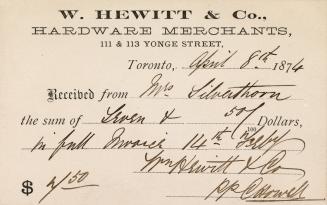 W. HEWITT & Co.,
HARDWARE MERCHANTS,
111 & 113 YONGE STREET,
Toronto, April 8th 1874
Received from Mrs Silverthorn
the sum of Seven & 50/100 Dollars,
in full Invoice 14th Feby
Wm Hewitt & Co
$ 7.50